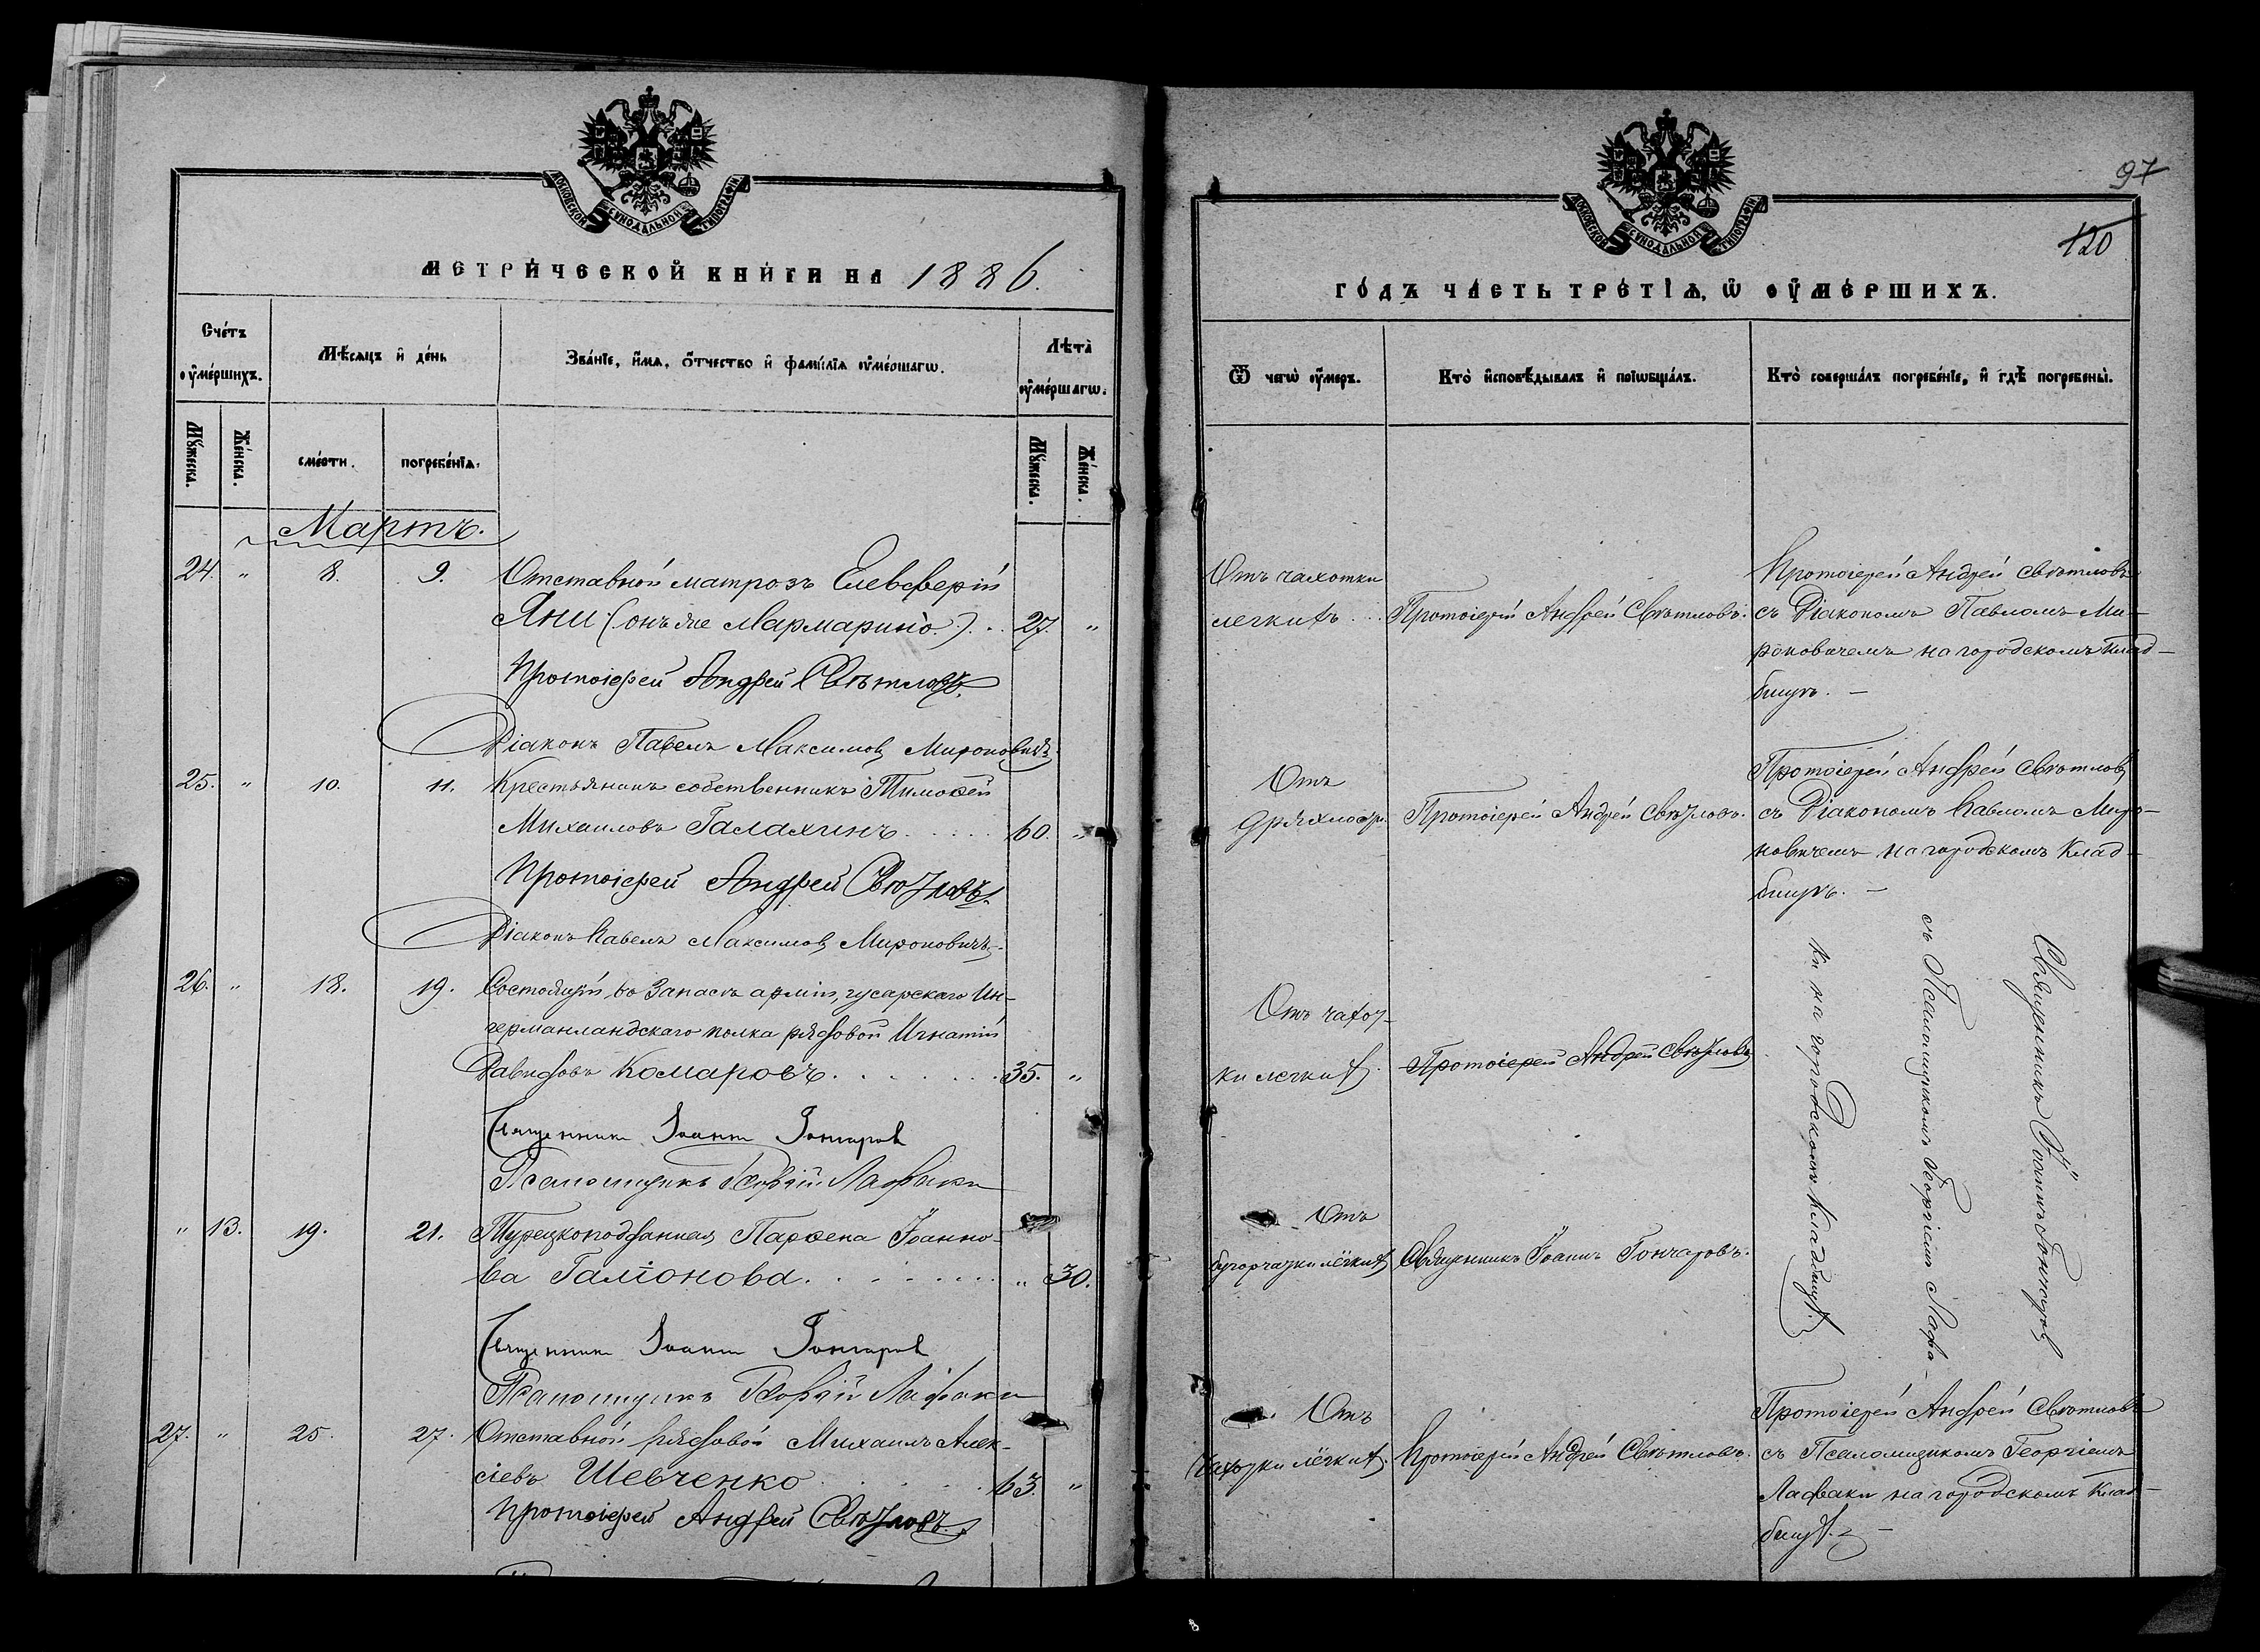 МОСКОВСКОЙ СѴНОДАЛЬНОЙ ТИПОГРАФІИ
МЕТРИ́ЧЕСКОЙ КНИ́ГИ НА 1886.
Сче́тъ ᲂу҆ме́ршихъ.
Мѣ́сяцъ и҆ де́нь
Зва́нїе, и҆́мѧ, ѻ҆́тчество и҆ фами́лїѧ ᲂу҆ме́ршагѡ.
Лѣта̀ ᲂу҆ме́ршагѡ.
Мꙋ́жеска.
Же́нска.
сме́рти.
погребе́нїѧ.
Мꙋ́жеска.
Же́нска.
Мартъ.
24. " 8. 9. Отставной матрозъ Елевферій
Яни (онъ же Мармарино.) . . 27. "
Протоіерей Андрей Свѣтловъ.
Діаконъ Павелъ Максимов Мироновичъ.
25. " 10. 11. Крестьянинъ собственникъ Тимоѳей
Михаиловъ Галахинъ . . . . . 60. "
Протоіерей Андрей Свѣтловъ.
Діаконъ Павелъ Максимов Мироновичъ.
26. " 18. 19. Состоящій въ Запасѣ арміи, гусарскаго Ин-
германландскаго полка рядовой Игнатій
Давидовъ Комаровъ . . . . . . . 35. "
Священникъ Іоаннъ Гончаров
Псаломщикъ Георгій Лафаки
" 13. 19. 21. Турецкоподданная Парѳена Іоанно-
ва Галіонова . . . . . . . " 30.
Священникъ Іоаннъ Гончаров
Псаломщикъ Георгій Лафаки
27. " 25. 27. Отставной рядовой Михаилъ Алек-
сіевъ Шевченко . . . 63. "
Протоіерей Андрей Свѣтловъ.
97
120
МОСКОВСКОЙ СѴНОДАЛЬНОЙ ТИПОГРАФІИ
ГО́ДЪ ЧА́СТЬ ТРЕ́ТЇѦ, Ѡ҆ ᲂУ҆МЕ́РШИХЪ.
Ѿ чегѡ̀ ᲂу҆́меръ.
Кто̀ и҆сповѣ́дывалъ и҆ прїѡбща́лъ.
Кто̀ соверша́лъ погребе́нїе, и҆ гдѣ̀ погребены̀.
Отъ чахотки
легкихъ . . . Протоіерей Андрей Свѣтловъ.
Протоіерей Андрей Свѣтловъ
съ Діакономъ Павломъ Ми-
роновичемъ на городскомъ клад-
бищѣ. –
Отъ
дряхлости. Протоіерей Андрей Свѣтловъ.
Протоіерей Андрей Свѣтлов
съ Діакономъ Павломъ Миро-
новичемъ на городскомъ Клад-
бищѣ. –
Отъ чахот-
ки легких. Протоіерей Андрей Свѣтловъ
Отъ
бугорчатки лёгких Священникъ Іоаннъ Гончаровъ.
Священникъ Іоаннъ Гончаров
съ Псаломщикомъ Георгіемъ Лафа-
ки на городскомъ Кладбищѣ.
Отъ
Чахотки лёгких. Протоіерей Андрей Свѣтловъ.
Протоіерей Андрей Свѣтловъ
съ Псаломщикомъ Георгіемъ
Лафаки на городскомъ Клад-
бищѣ. –